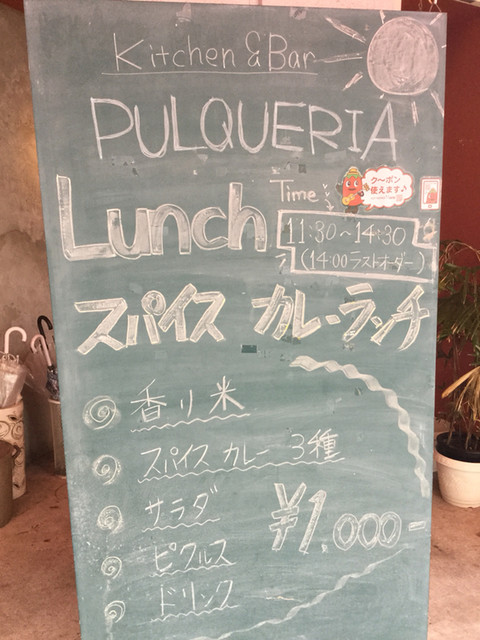 Kitchen & Bar
PULQUERIA
Lunch Time
ク〜ポン
使えます♪
11:30〜14:30
(14:00ラストオーダー)
スパイス カレーランチ
香り米
スパイス カレー 3種
サラダ
ピクルス
ドリンク
¥1.000-